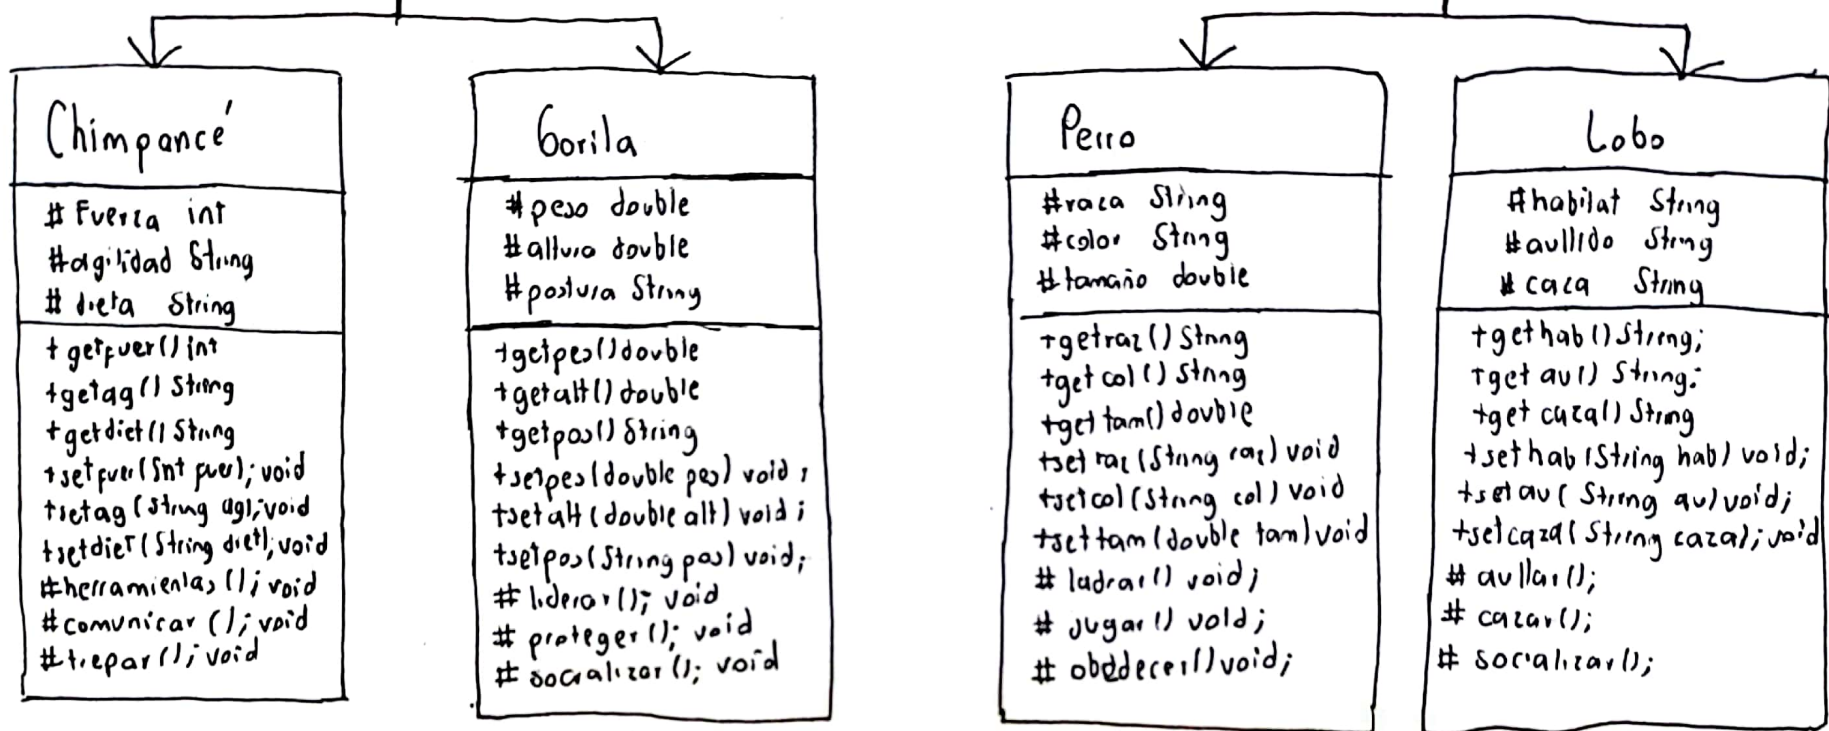 Chimpancé
# Fuerza int
#agilidad String
# dieta String
+ getfuer() int
+getag() String
+getdiet() String
+setfuer(int fuer); void
+setag (String ag); void
+setdiet (String diet); void
#herramientas (); void
#comunicar (); void
#trepar(); void
Gorila
#peso double
#altura double
#postura String
+getpes() double
+getalt() double
+getpos() String
+setpes(double pes) void ;
+setalt (double alt) void ;
+setpos(String pos) void;
# liderar(); void
# proteger(); void
# socializar (); void
Perro
#raza String
#color String
#tamaño double
+getraz() String
+get col() String
+get tam() double
+set raz (String raz) void
+setcol(String col) void
+set tam (double tam) void
# ladrar() void;
# jugar() void;
# obedecer() void;
Lobo
#habitat String
#aullido String
# caza String
+get hab() String;
+get au() String;
+get caza() String
+set hab (String hab) void;
+set au( String au) void;
+setcaza( String caza); void
# aullar();
# cazar();
# socializar();